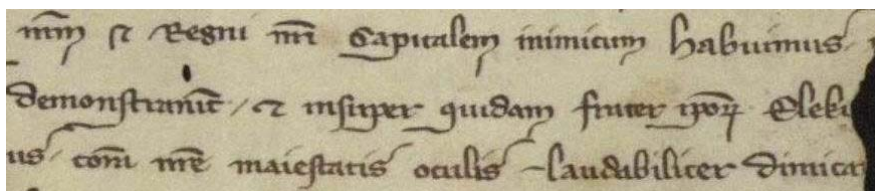 nr̄m et Regni nr̄i Capitalem inimicum habuimus
demonstraniт̄ / et insuper quidam frater ipoꝝ Elek
us corā nr̄e maiestatis oculis laudabiliter dimica